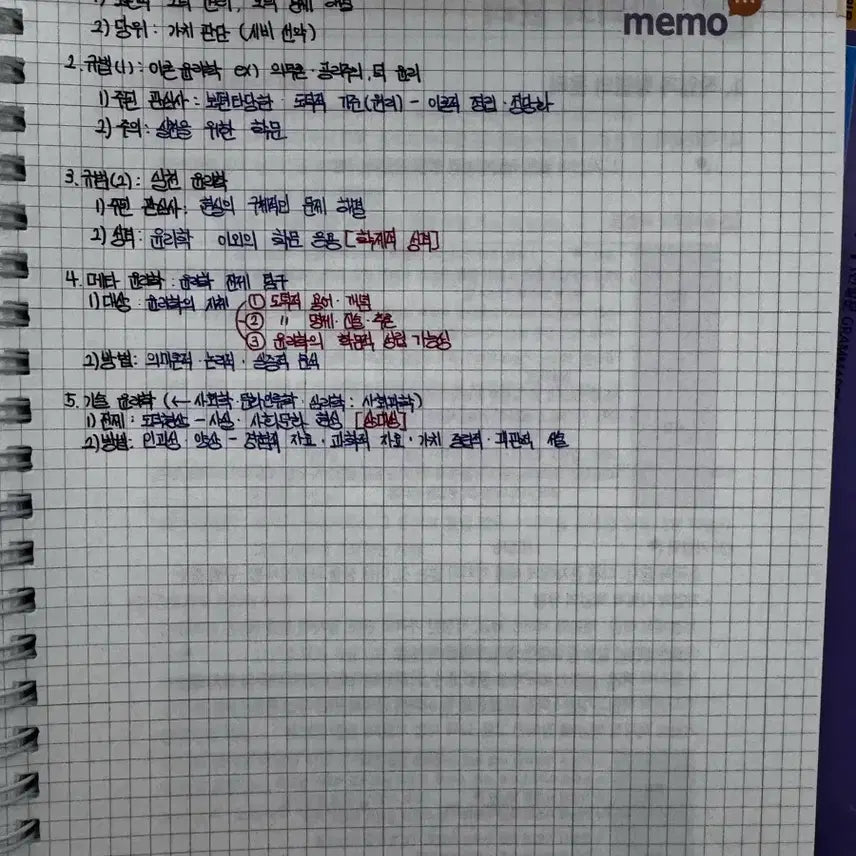 memo
2) 당위: 가치 판단 (시비 선악)
2. 규범(1): 이론 윤리학 ex) 의무론·공리주의, 덕 윤리
1) 주된 관심사: 보편타당한 도덕적 기준(원리) - 이론적 정립·정당화
2) 주의: 실천을 위한 학문
3. 규범(2): 실천 윤리학
1) 주된 관심사: 현실의 구체적인 문제 해결
2) 성격: 윤리학 이외의 학문 응용 [학제적 성격]
4. 메타 윤리학: 윤리학 전제 탐구
1) 대상: 윤리학의 자체 ① 도덕적 용어·개념
② 〃 명제·진술·추론
③ 윤리학의 학문적 성립 가능성
2) 방법: 의미론적·논리적·실증적 분석
5. 기술 윤리학 (← 사회학·문화인류학·심리학: 사회과학)
1) 전제: 도덕현상 - 사실·사회문화 현상 [상대성]
2) 방법: 인과성·양상 - 경험적 자료·과학적 자료·가치 중립적·객관적 서술
GRAMMAR